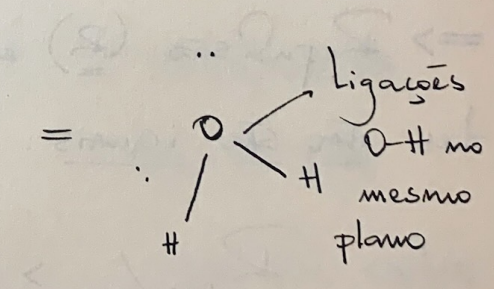 =
O
Ligações
O-H no
H
mesmo
H
plano